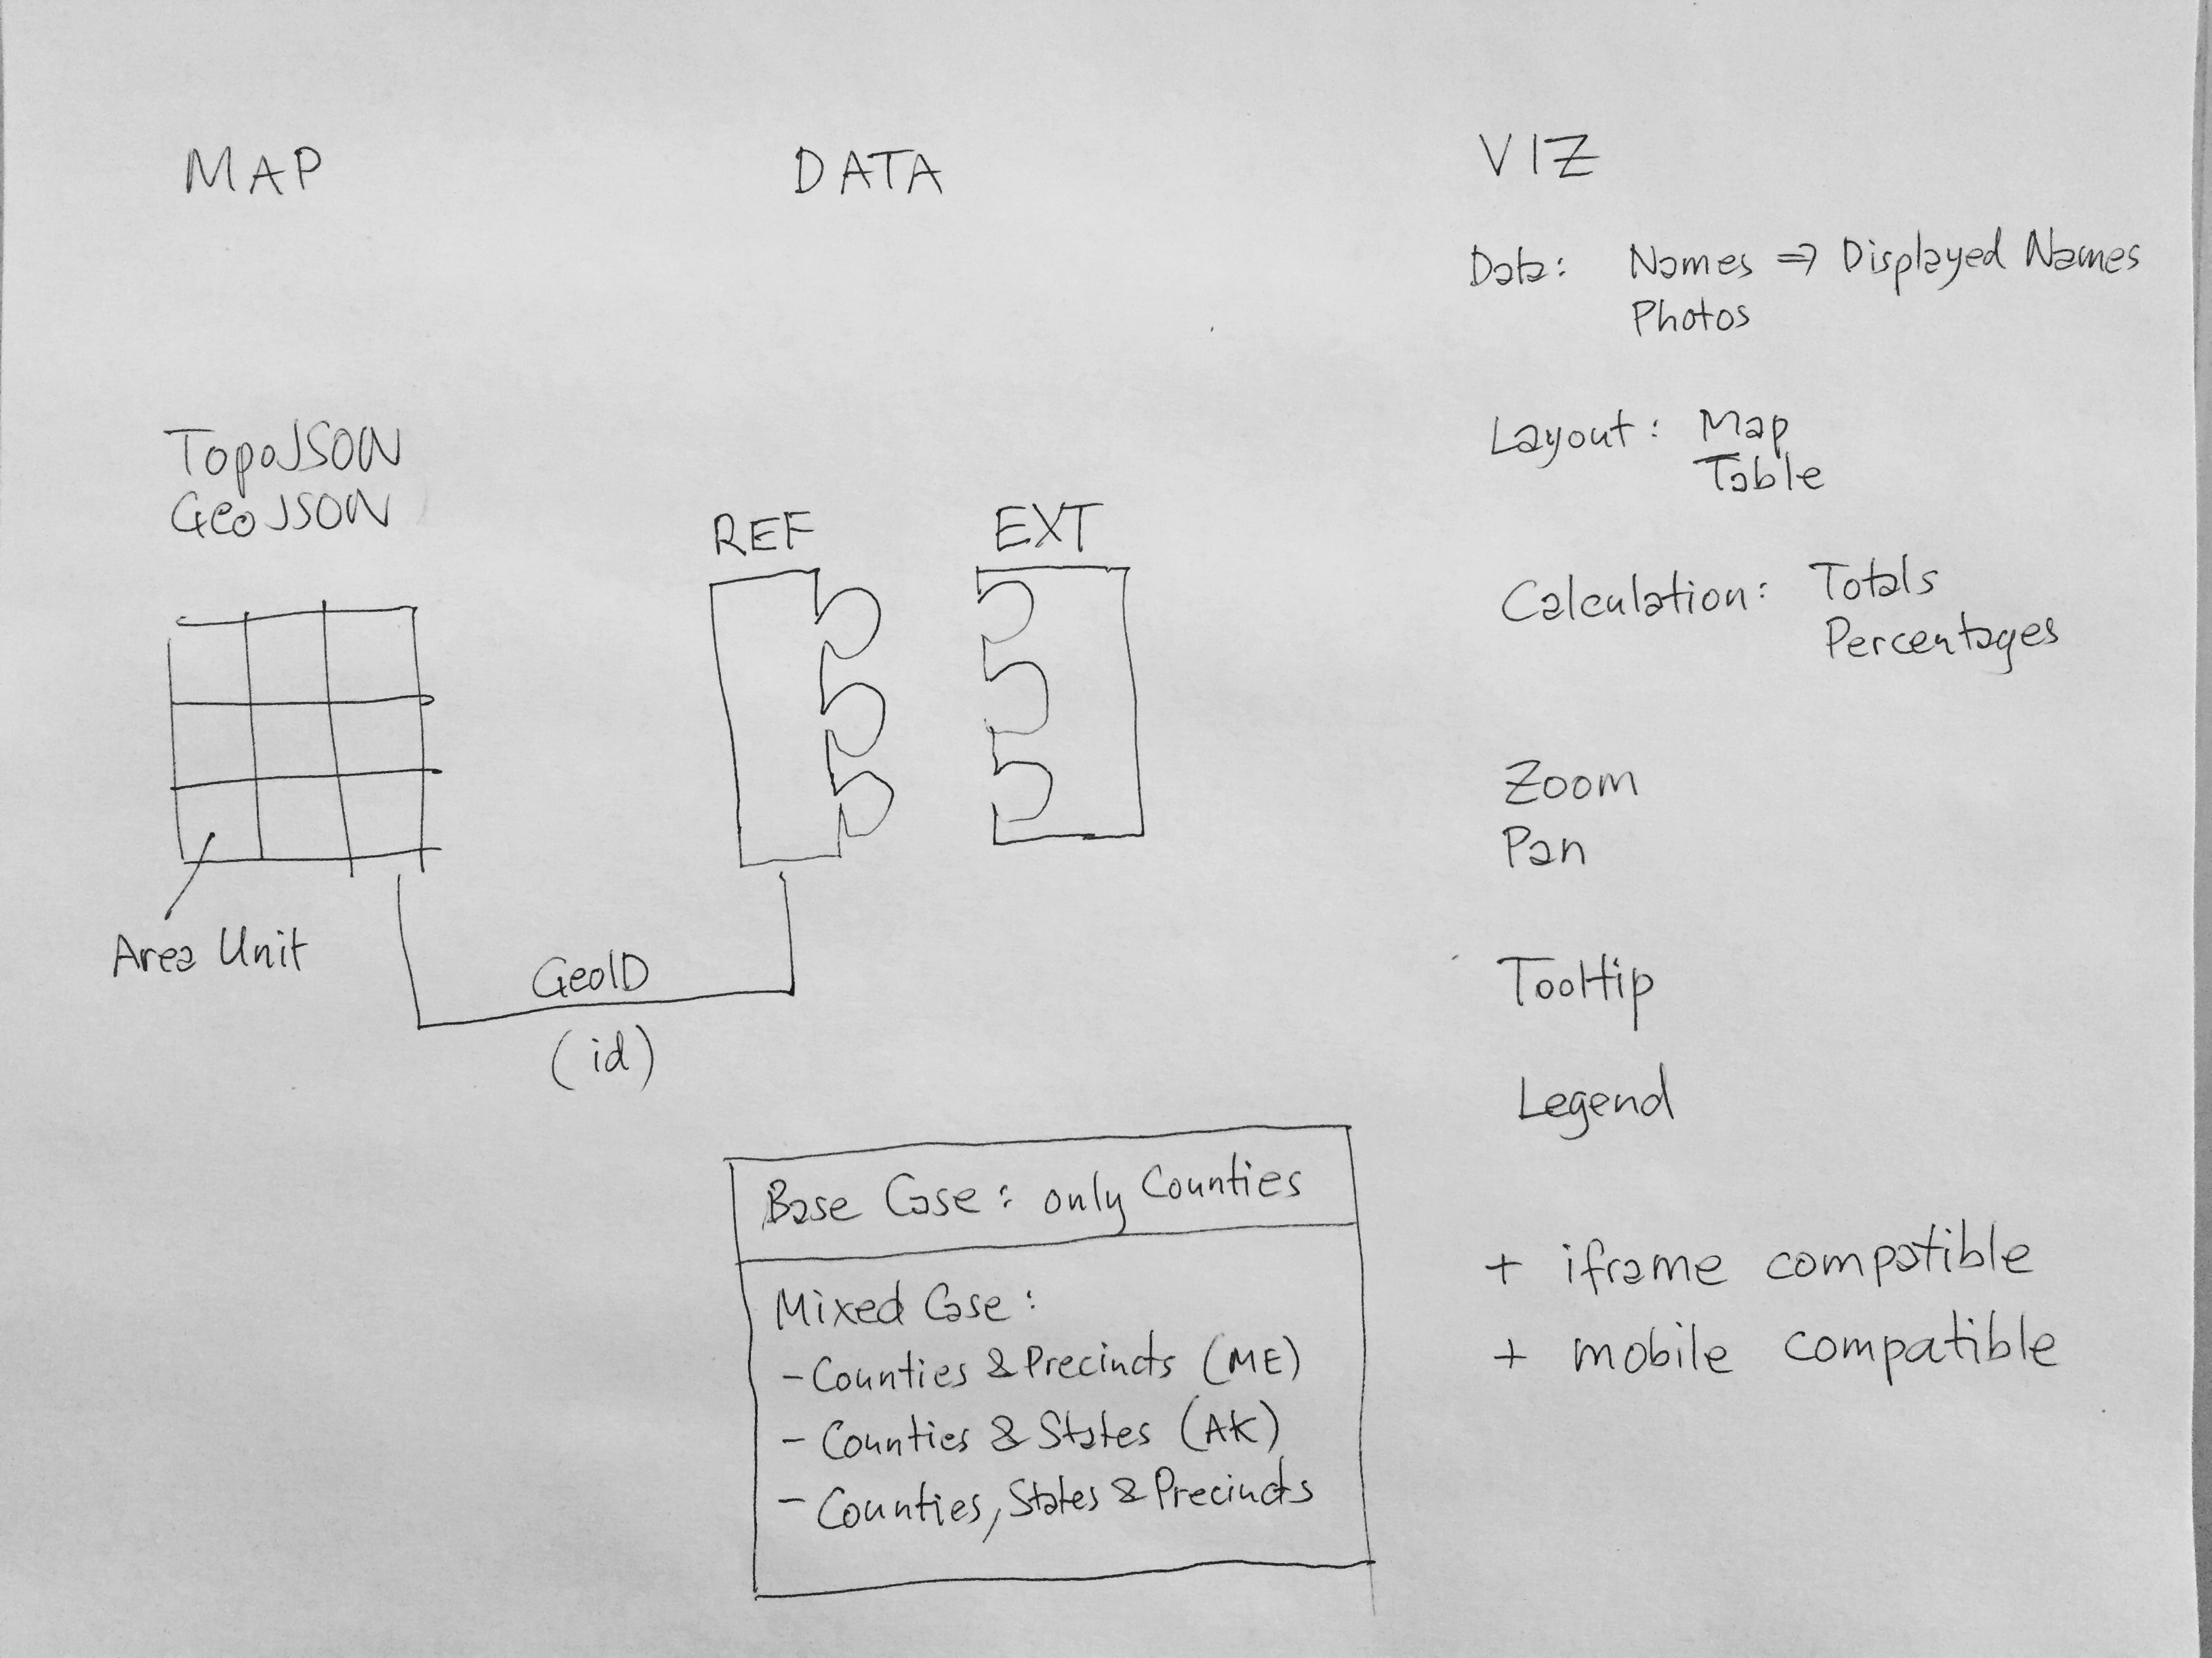 MAP
TopoJSON
GeoJSON
Area Unit
GeoID
(id)
DATA
REF
EXT
Base Case: only Counties
Mixed Case:
- Counties & Precincts (ME)
- Counties & States (AK)
- Counties, States & Precincts
VIZ
Data: Names ⇒ Displayed Names
Photos
Layout: Map
Table
Calculation: Totals
Percentages
Zoom
Pan
Tooltip
Legend
+ iframe compatible
+ mobile compatible